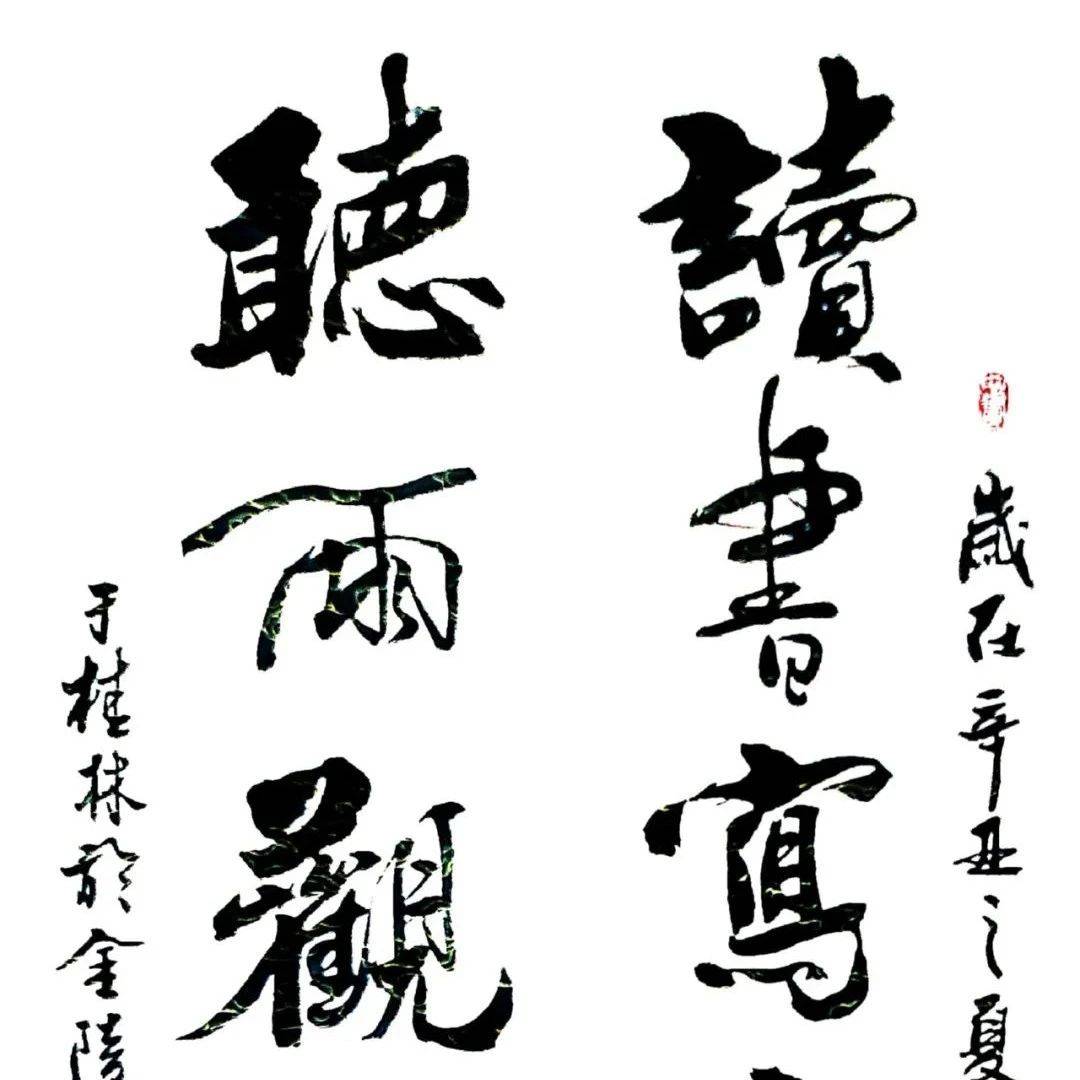 歲在辛丑之夏
讀書寫
聽雨觀
于桂林於金陵